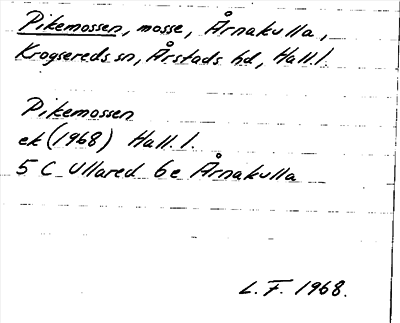 Pikemossen, mosse, Årnakulla,
Krogsereds sn, Årstads hd, Hall. l.
Pikemossen
ek (1968) Hall. l.
5 C Ullared 6e Årnakulla
L. F. 1968.